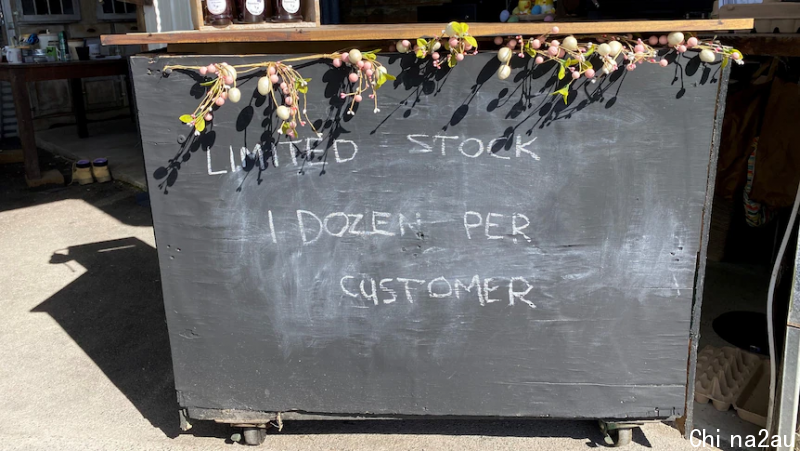 LIMITED STOCK
1 DOZEN PER
CUSTOMER
Chi na2au